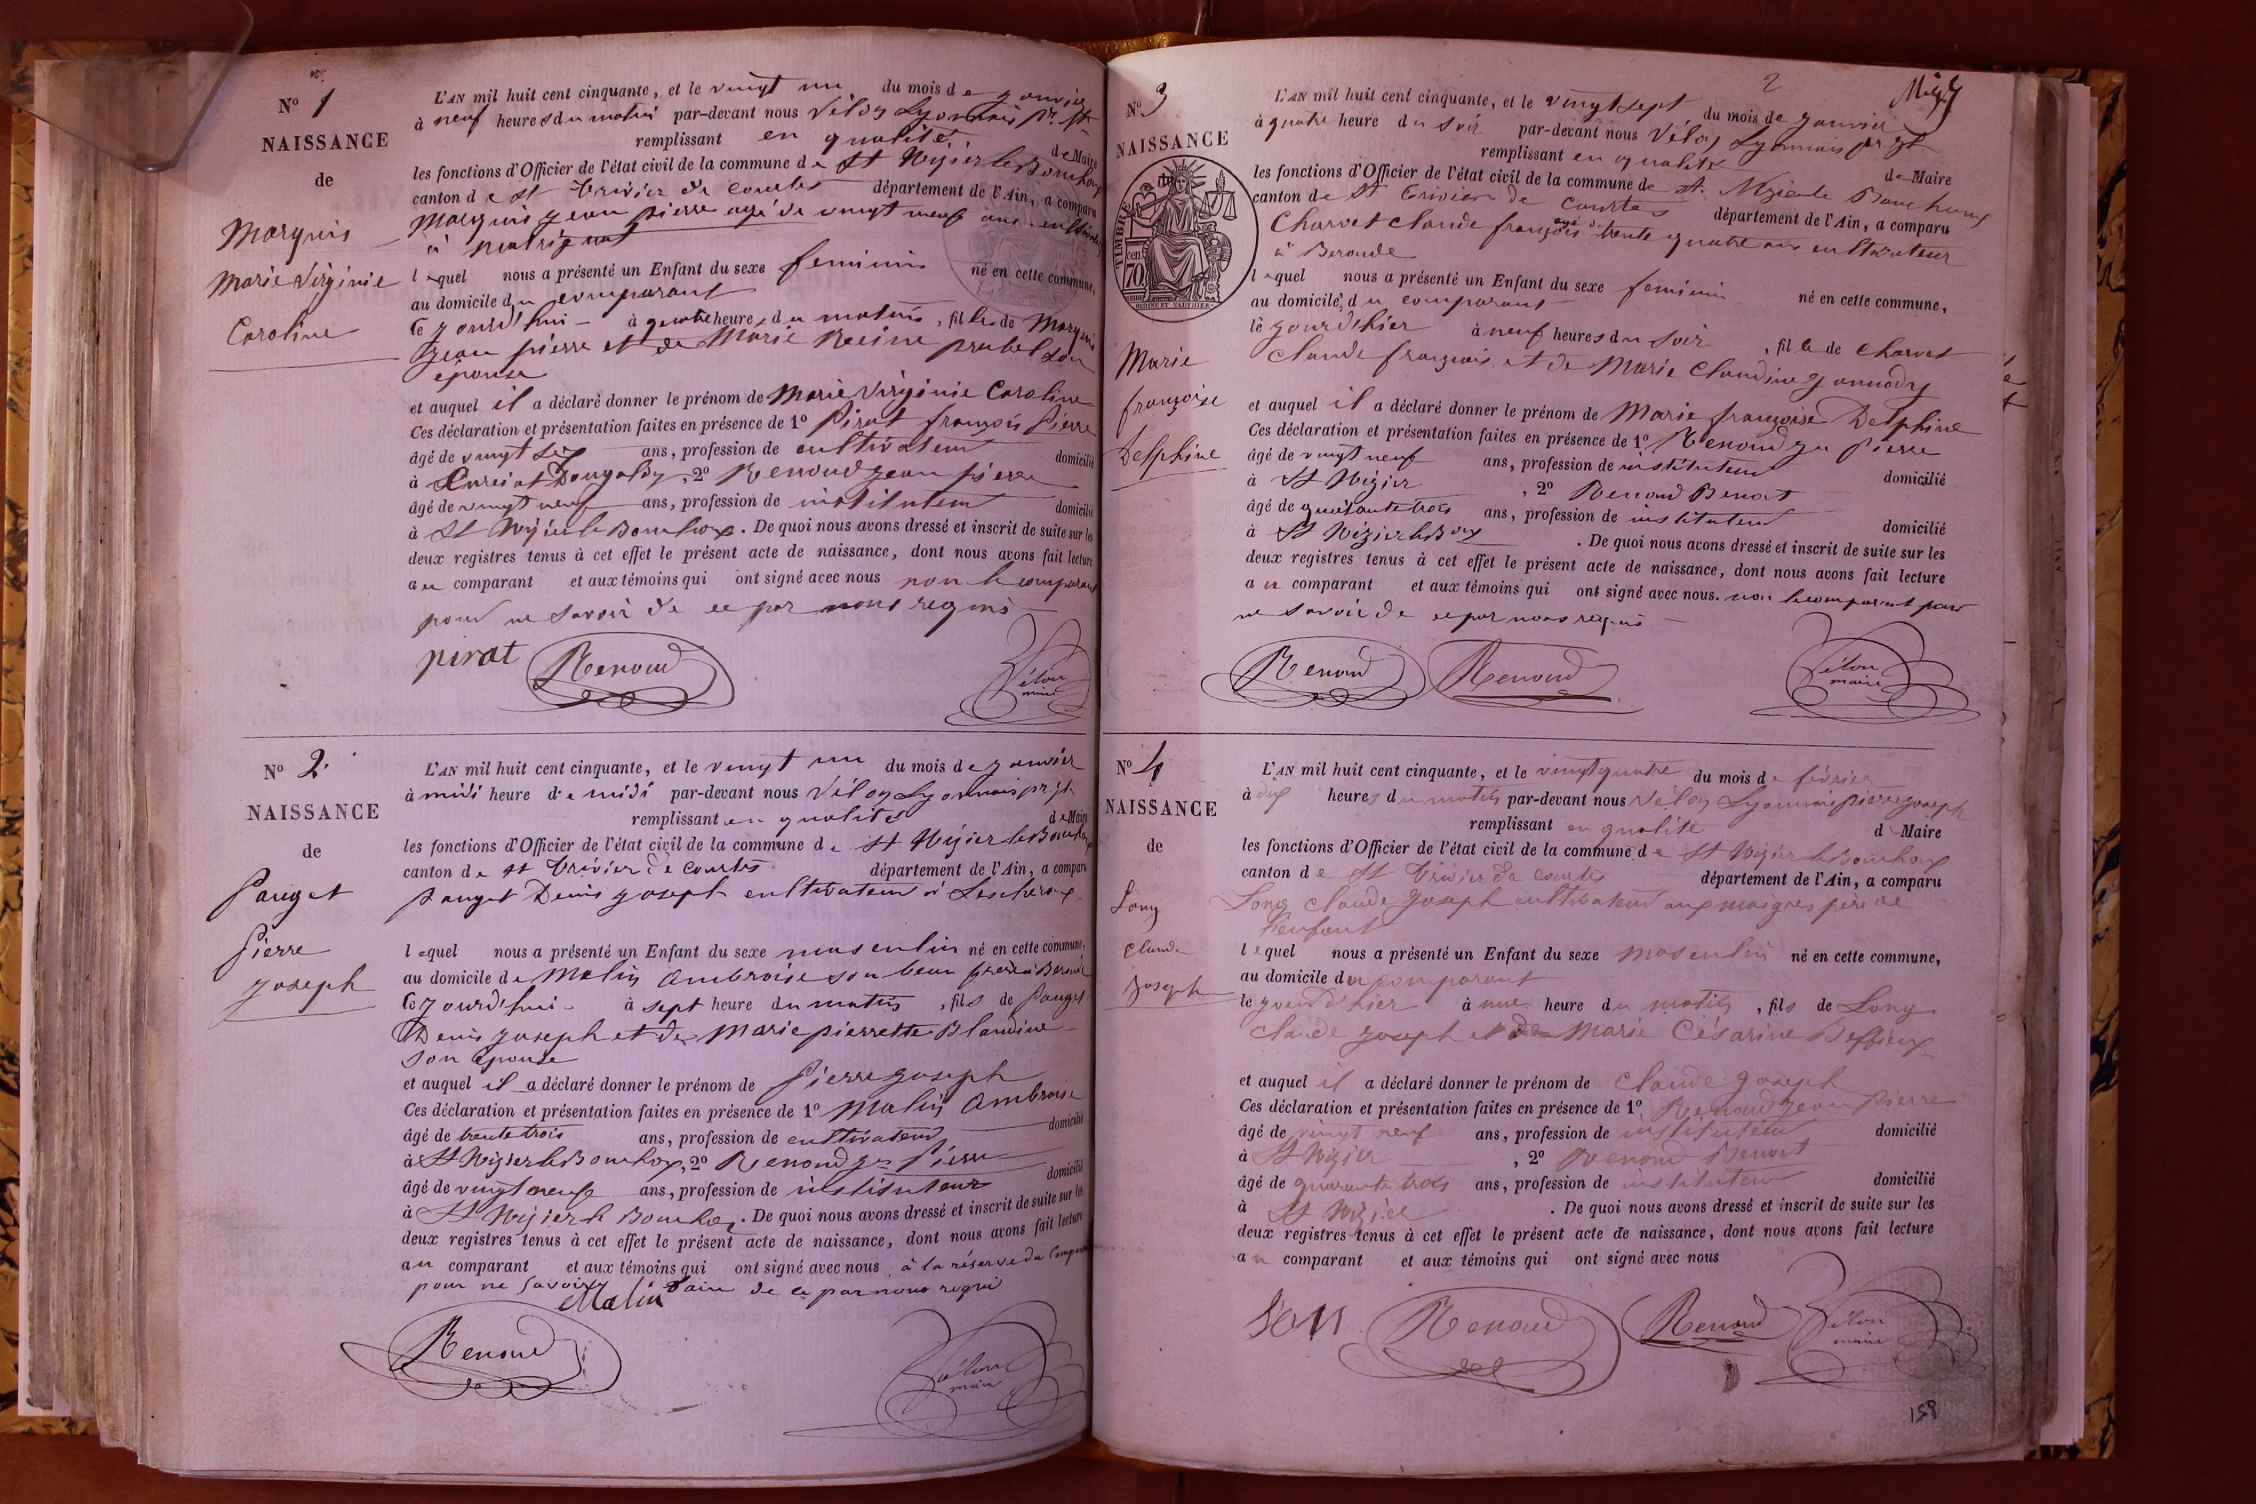 N° 1
NAISSANCE
de
Marquis
Marie Virginie
Caroline
L'AN mil huit cent cinquante, et le vingt un du mois de janvier
à neuf heures du matin par-devant nous Vélon Lyonnais pre jh
remplissant en qualité de Maire
les fonctions d'Officier de l'état civil de la commune de St Nizier le Bouchoux
canton de St Trivier de Courtes département de l'Ain, a comparu
Marquis jean pierre agé de vingt neuf ans cultivateur
à
lequel nous a présenté un Enfant du sexe feminin né en cette commune,
au domicile du comparant
ce jourd'hui à quatre heures du matin, fille de Marquis
jean pierre et de Marie Reine prabel son
épouse
et auquel il a déclaré donner le prénom de Marie Virginie Caroline
Ces déclaration et présentation faites en présence de 1° Pirat françois Pierre
âgé de vingt six ans, profession de cultivateur domicilié
à Curciat Dongalon, 2° Renoud jean pierre
âgé de vingt neuf ans, profession de instituteur domicilié
à St Nizier le Bouchoux. De quoi nous avons dressé et inscrit de suite sur les
deux registres tenus à cet effet le présent acte de naissance, dont nous avons fait lecture
au comparant et aux témoins qui ont signé avec nous non le comparant
pour ne savoir de ce par nous requis
pirat Renoud Vélon
maire
N° 2.
NAISSANCE
de
Pauget
Pierre
joseph
L'AN mil huit cent cinquante, et le vingt un du mois de janvier
à midi heure de midi par-devant nous Vélon Lyonnais pr jh
remplissant en qualité de Maire
les fonctions d'Officier de l'état civil de la commune de St Nizier le Bouchoux
canton de St Trivier de Courtes département de l'Ain, a comparu
Pauget Denis joseph cultivateur à Lescheroux
lequel nous a présenté un Enfant du sexe masculin né en cette commune,
au domicile de Malin Ambroise son beau frère à
ce jourd'hui à sept heure du matin, fils de Pauget
Denis joseph et de Marie pierrette Blandine
son épouse
et auquel il a déclaré donner le prénom de Pierre joseph
Ces déclaration et présentation faites en présence de 1° Malin Ambroise
âgé de trente trois ans, profession de cultivateur domicilié
à St Nizier le Bouchoux, 2° Renoud jn Pierre
âgé de vingt neuf ans, profession de instituteur domicilié
à St Nizier le Bouchoux. De quoi nous avons dressé et inscrit de suite sur les
deux registres tenus à cet effet le présent acte de naissance, dont nous avons fait lecture
au comparant et aux témoins qui ont signé avec nous à la réserve du Comparant
pour ne savoir faire de ce par nous requis
Malin
Renoud Vélon
maire
2
N° 3
NAISSANCE
TIMBRE
cen 70
Marie
françoise
Delphine
L'AN mil huit cent cinquante, et le vingt sept du mois de janvier
à quatre heure du soir par-devant nous Vélon Lyonnais pr jh
remplissant en qualité de Maire
les fonctions d'Officier de l'état civil de la commune de St Nizier le Bouchoux
canton de St Trivier de Courtes département de l'Ain, a comparu
Charvet Claude françois agé de trente quatre ans cultivateur
à Beronde
lequel nous a présenté un Enfant du sexe feminin né en cette commune,
au domicile du comparant
le jourd'hier à neuf heures du soir, fille de Charvet
Claude françois et de Marie Claudine
et auquel il a déclaré donner le prénom de Marie françoise Delphine
Ces déclaration et présentation faites en présence de 1° Renoud jn Pierre
âgé de vingt neuf ans, profession de instituteur domicilié
à St Nizier, 2° Renoud Benoit
âgé de quarante trois ans, profession de instituteur domicilié
à St Nizier le Boux. De quoi nous avons dressé et inscrit de suite sur les
deux registres tenus à cet effet le présent acte de naissance, dont nous avons fait lecture
au comparant et aux témoins qui ont signé avec nous. non le comparant pour
ne savoir de ce par nous requis
Renoud Renoud Vélon
maire
N° 4
NAISSANCE
de
Long
Claude
Joseph
L'AN mil huit cent cinquante, et le vingt quatre du mois de février
à dix heures du matin par-devant nous Vélon Lyonnais pierre joseph
remplissant en qualité d Maire
les fonctions d'Officier de l'état civil de la commune de St Nizier le Bouchoux
canton de St Trivier de Courtes département de l'Ain, a comparu
Long Claude Joseph cultivateur aux maigres père de
l'enfant
lequel nous a présenté un Enfant du sexe masculin né en cette commune,
au domicile du comparant
le jourd'hier à une heure du matin, fils de Long
Claude joseph et de Marie Césarine Beffieux
et auquel il a déclaré donner le prénom de Claude Joseph
Ces déclaration et présentation faites en présence de 1° Renoud jean Pierre
âgé de vingt neuf ans, profession de instituteur domicilié
à St Nizier, 2° Renoud Benoit
âgé de quarante trois ans, profession de instituteur domicilié
à St Nizier. De quoi nous avons dressé et inscrit de suite sur les
deux registres tenus à cet effet le présent acte de naissance, dont nous avons fait lecture
au comparant et aux témoins qui ont signé avec nous
Renoud Renoud Vélon
maire
159